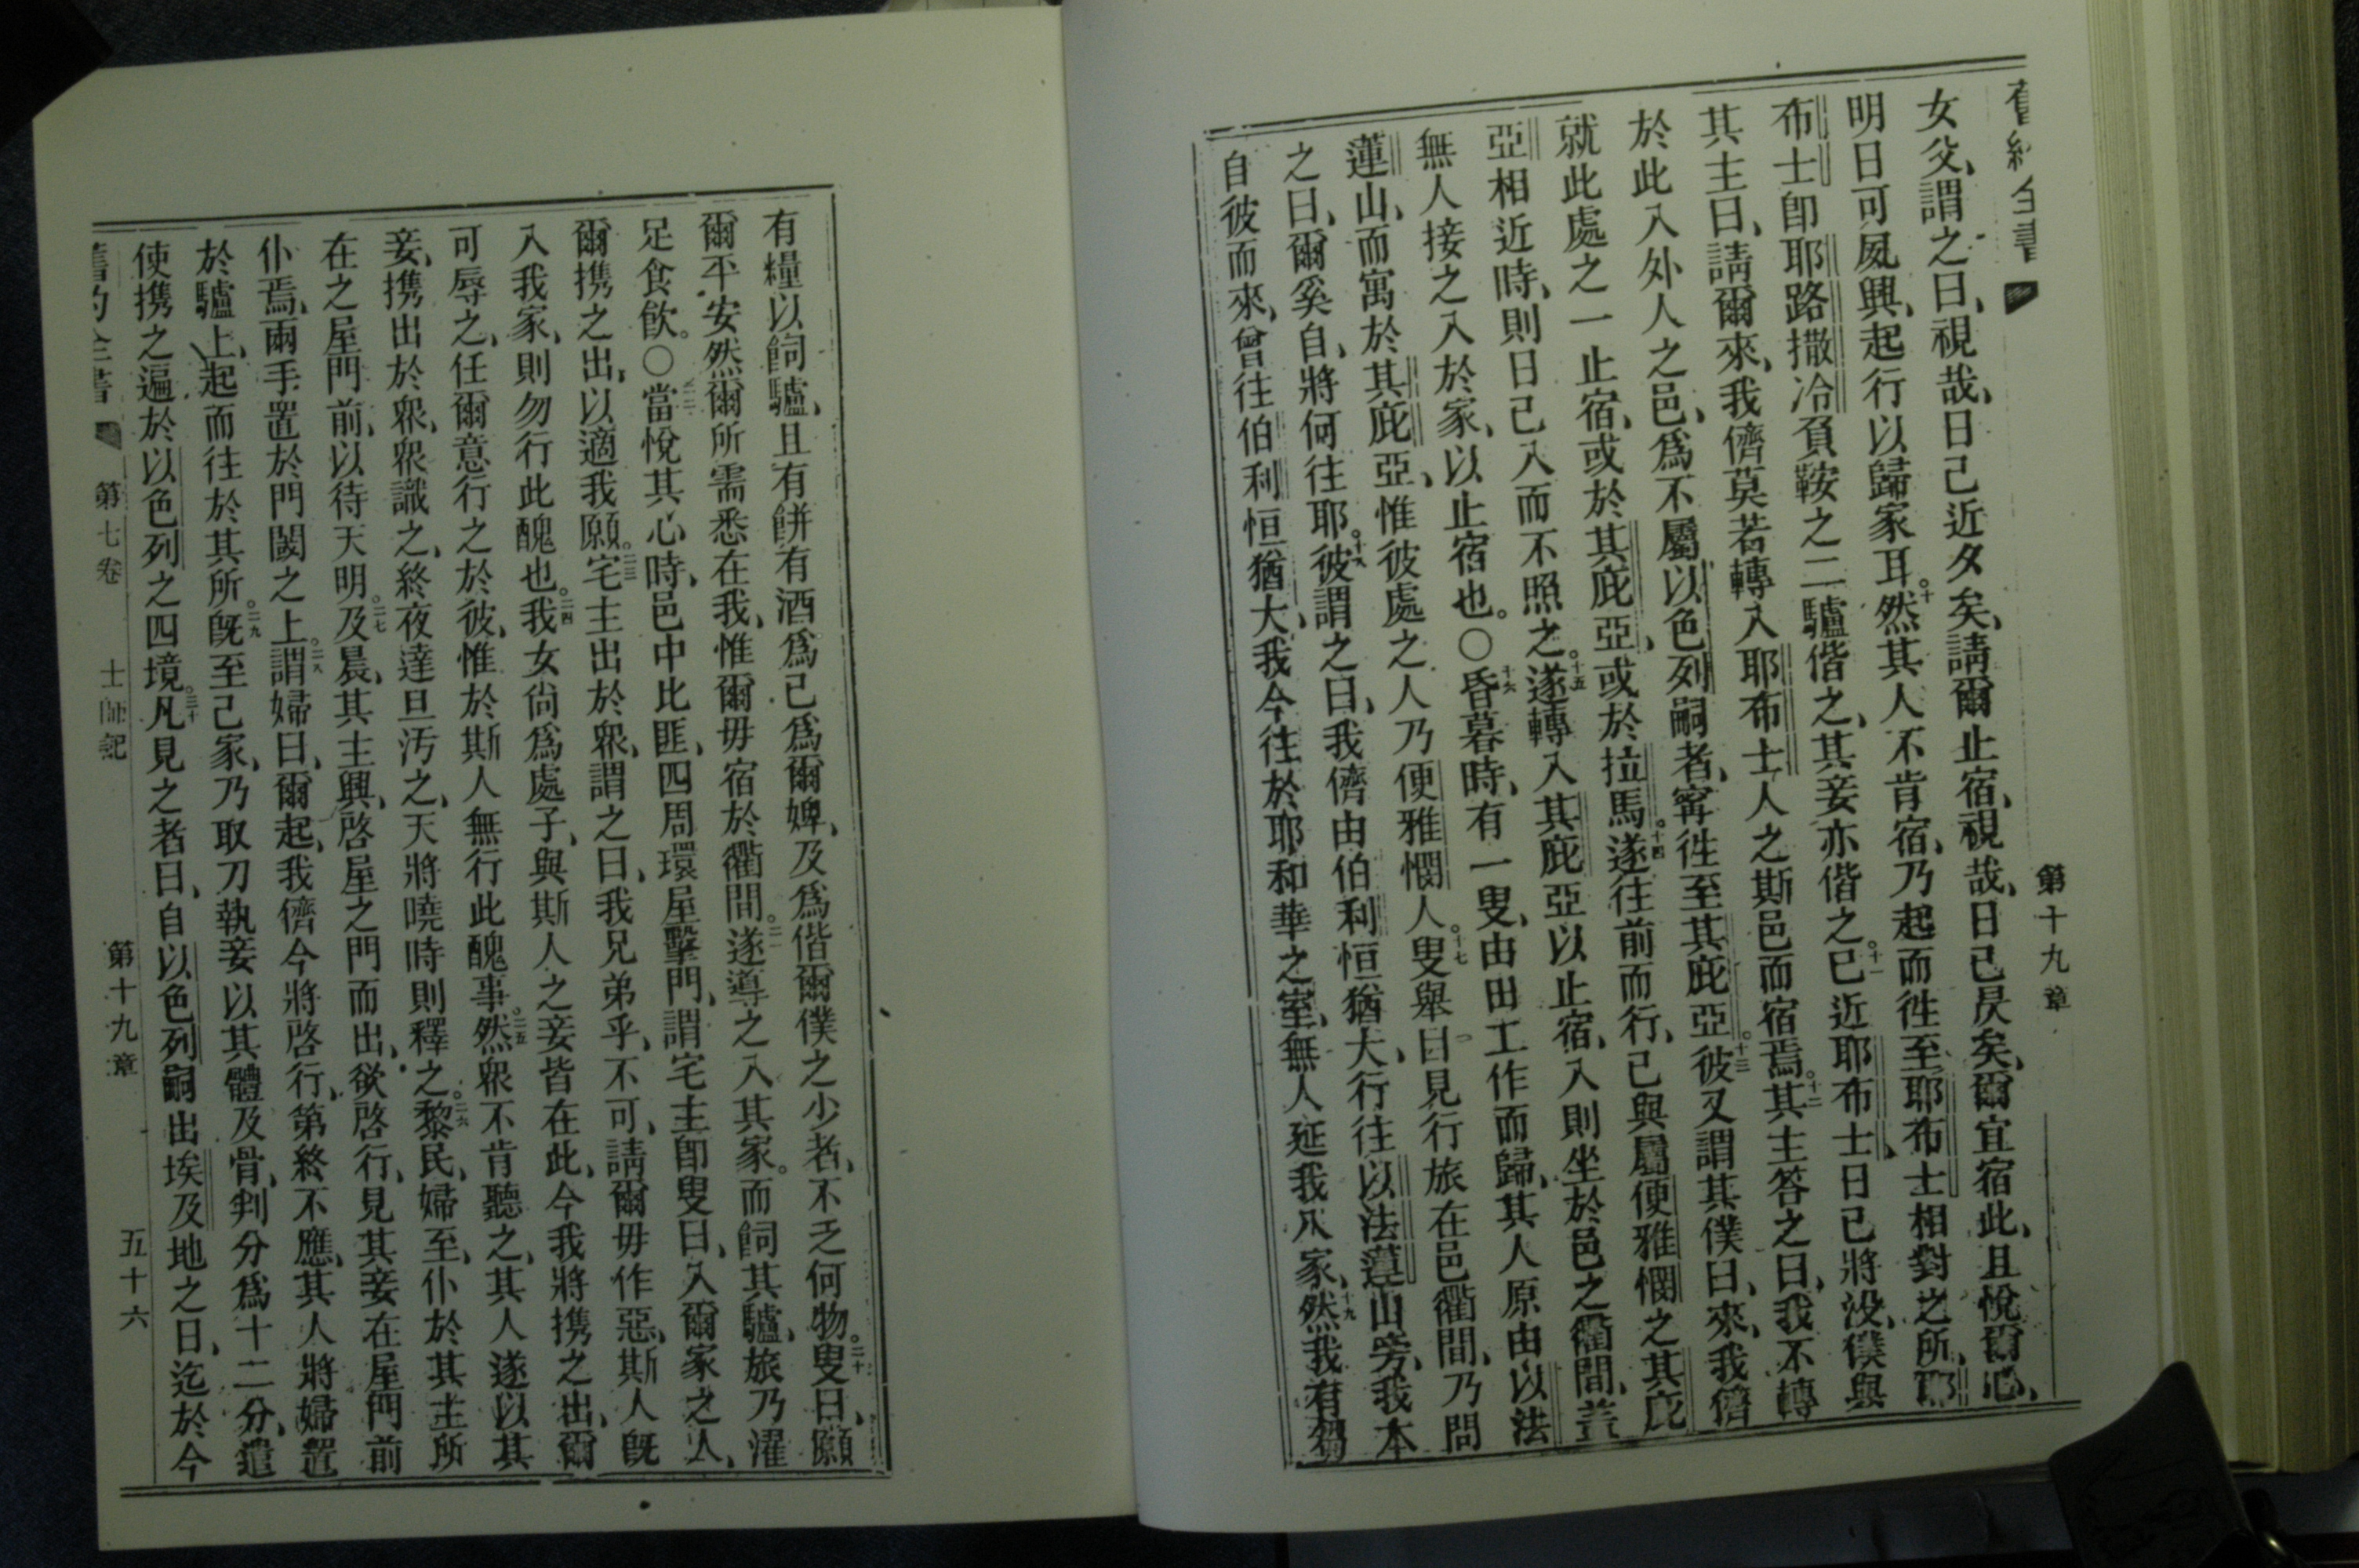 舊約全書
第十九章
女父、謂之曰、視哉、日己近夕矣、請爾止宿、視哉、日己昃矣、爾宜宿此、且悅爾心、
明日可夙興、起行以歸家耳。十然其人不肯宿、乃起而徃至耶布士相對之所、耶
布士卽耶路撒冷負鞍之二驢偕之、其妾亦偕之。十一已近耶布士、日已將没、僕與
其主曰、請爾來、我儕莫若轉入耶布士人之斯邑而宿焉。十二其主答之曰、我不轉
於此入外人之邑、爲不屬以色列嗣者、寗徃至其庇亞。十三彼又謂其僕曰、來、我儕
就此處之一止宿、或於其庇亞、或於拉馬。十四遂往前而行、已與屬便雅憫之其庇
亞相近時、則日己入而不照之。十五遂轉入其庇亞以止宿、入則坐於邑之衢間、蓋
無人接之入於家、以止宿也。〇十六昏暮時、有一叟、由田工作而歸、其人原由以法
蓮山、而寓於其庇亞、惟彼處之人乃便雅憫人。十七叟舉目見行旅在邑衢間、乃問
之曰、爾奚自、將何往耶。十八彼謂之曰、我儕由伯利恒猶大、行往以法蓮山旁、我本
自彼而來、曾往伯利恒猶大、我今往於耶和華之室、無人延我入家、十九然我有芻
有糧以飼驢、且有餅有酒爲己爲爾婢、及爲偕爾僕之少者、不乏何物。二十叟曰、願
爾平安然爾所需悉在我、惟爾毋宿於衢間。二一遂導之入其家。而飼其驢、旅乃濯
足食飲。〇二二當悅其心時、邑中比匪、四周環屋擊門、謂宅主卽叟曰、入爾家之人、
爾携之出、以適我願。二三宅主出於衆、謂之曰、我兄弟乎、不可、請爾毋作惡、斯人旣
入我家、則勿行此醜也。二四我女尙爲處子、與斯人之妾皆在此、今我將携之出、爾
可辱之、任爾意行之於彼、惟於斯人無行此醜事。二五然衆不肯聽之、其人遂以其
妾、携出於衆、衆識之、終夜達旦汚之、天將曉時則釋之。二六黎民、婦至、仆於其主所
在之屋門前、以待天明。二七及晨、其主興、啓屋之門而出、欲啓行、見其妾在屋門前
仆焉、兩手置於門閾之上。二八謂婦曰、爾起、我儕今將啓行、第終不應、其人將婦置
於驢上、起而往於其所。二九旣至己家、乃取刀執妾以其體及骨、判分爲十二分、遣
使携之遍於以色列之四境。三十凡見之者曰、自以色列嗣出埃及地之日、迄於今
舊約全書 第七卷 士師記 第十九章 五十六